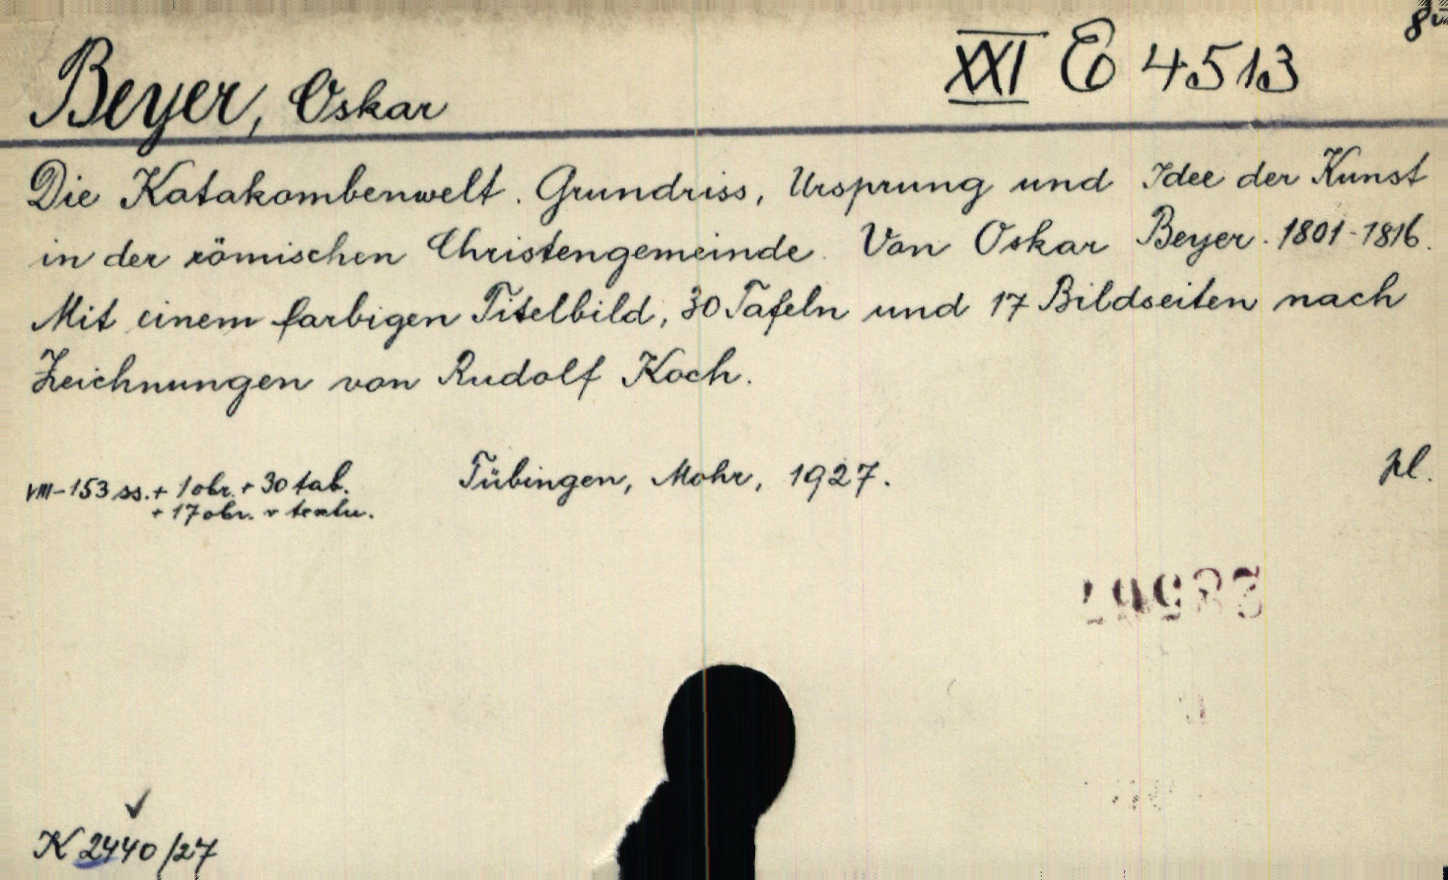 8º
Beyer, Oskar
XXI E 4513
Die Katakombenwelt. Grundriss, Ursprung und Idee der Kunst
in der römischen Christengemeinde. Von Oskar Beyer. 1801-1816.
Mit einem farbigen Titelbild, 30 Tafeln und 17 Bildseiten nach
Zeichnungen von Rudolf Koch.
VIII-153 ss. + 1 obr. + 30 tab.
+ 17 obr. v textu.
Tübingen, Mohr, 1927.
pl.
K 2440/27